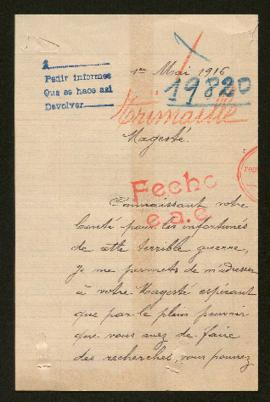 2
Pedir informes
Que se hace así
Devolver
1er Mai 1916
19820
Trimaille
Magesté.
Fecho
e.a.c
Connaissant votre
bonté pour les infortunés
de cette terrible guerre,
Je me permets de m'adresser
à votre Magesté espérant
que par le plein pouvoir
que vous avez de faire
des recherches, vous pourrez